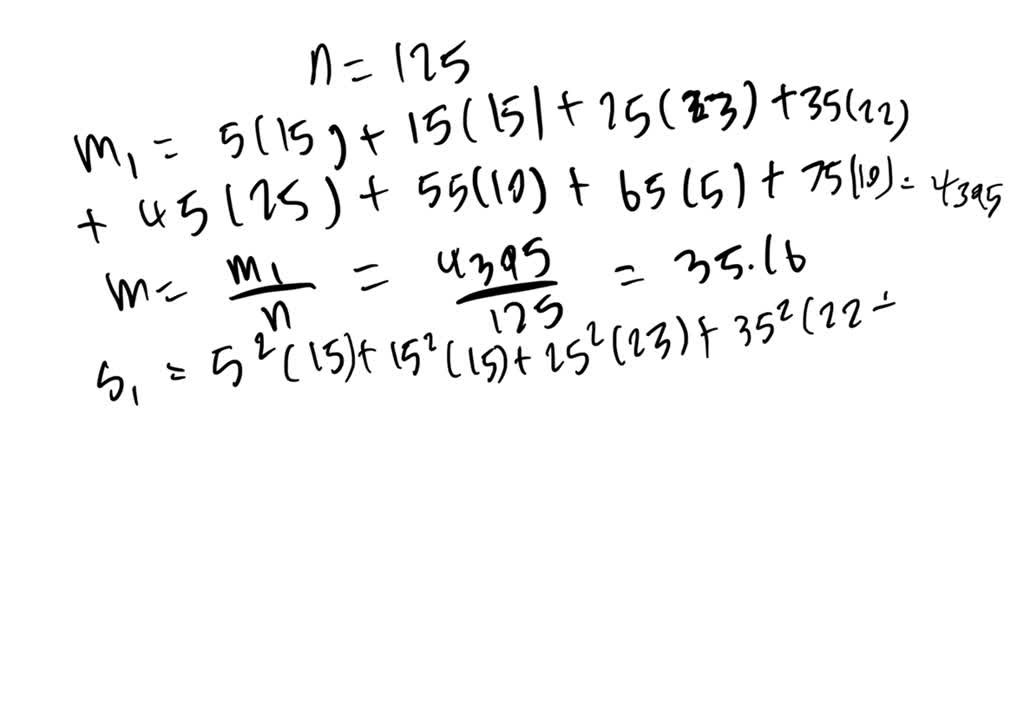 n = 125
m₁ = 5(15) + 15(15) + 25(23) + 35(22)
+ 45(25) + 55(10) + 65(5) + 75(10) = 4395
m = m₁/n = 4395/125 = 35.16
s₁ = 5²(15) + 15²(15) + 25²(23) + 35²(22 +